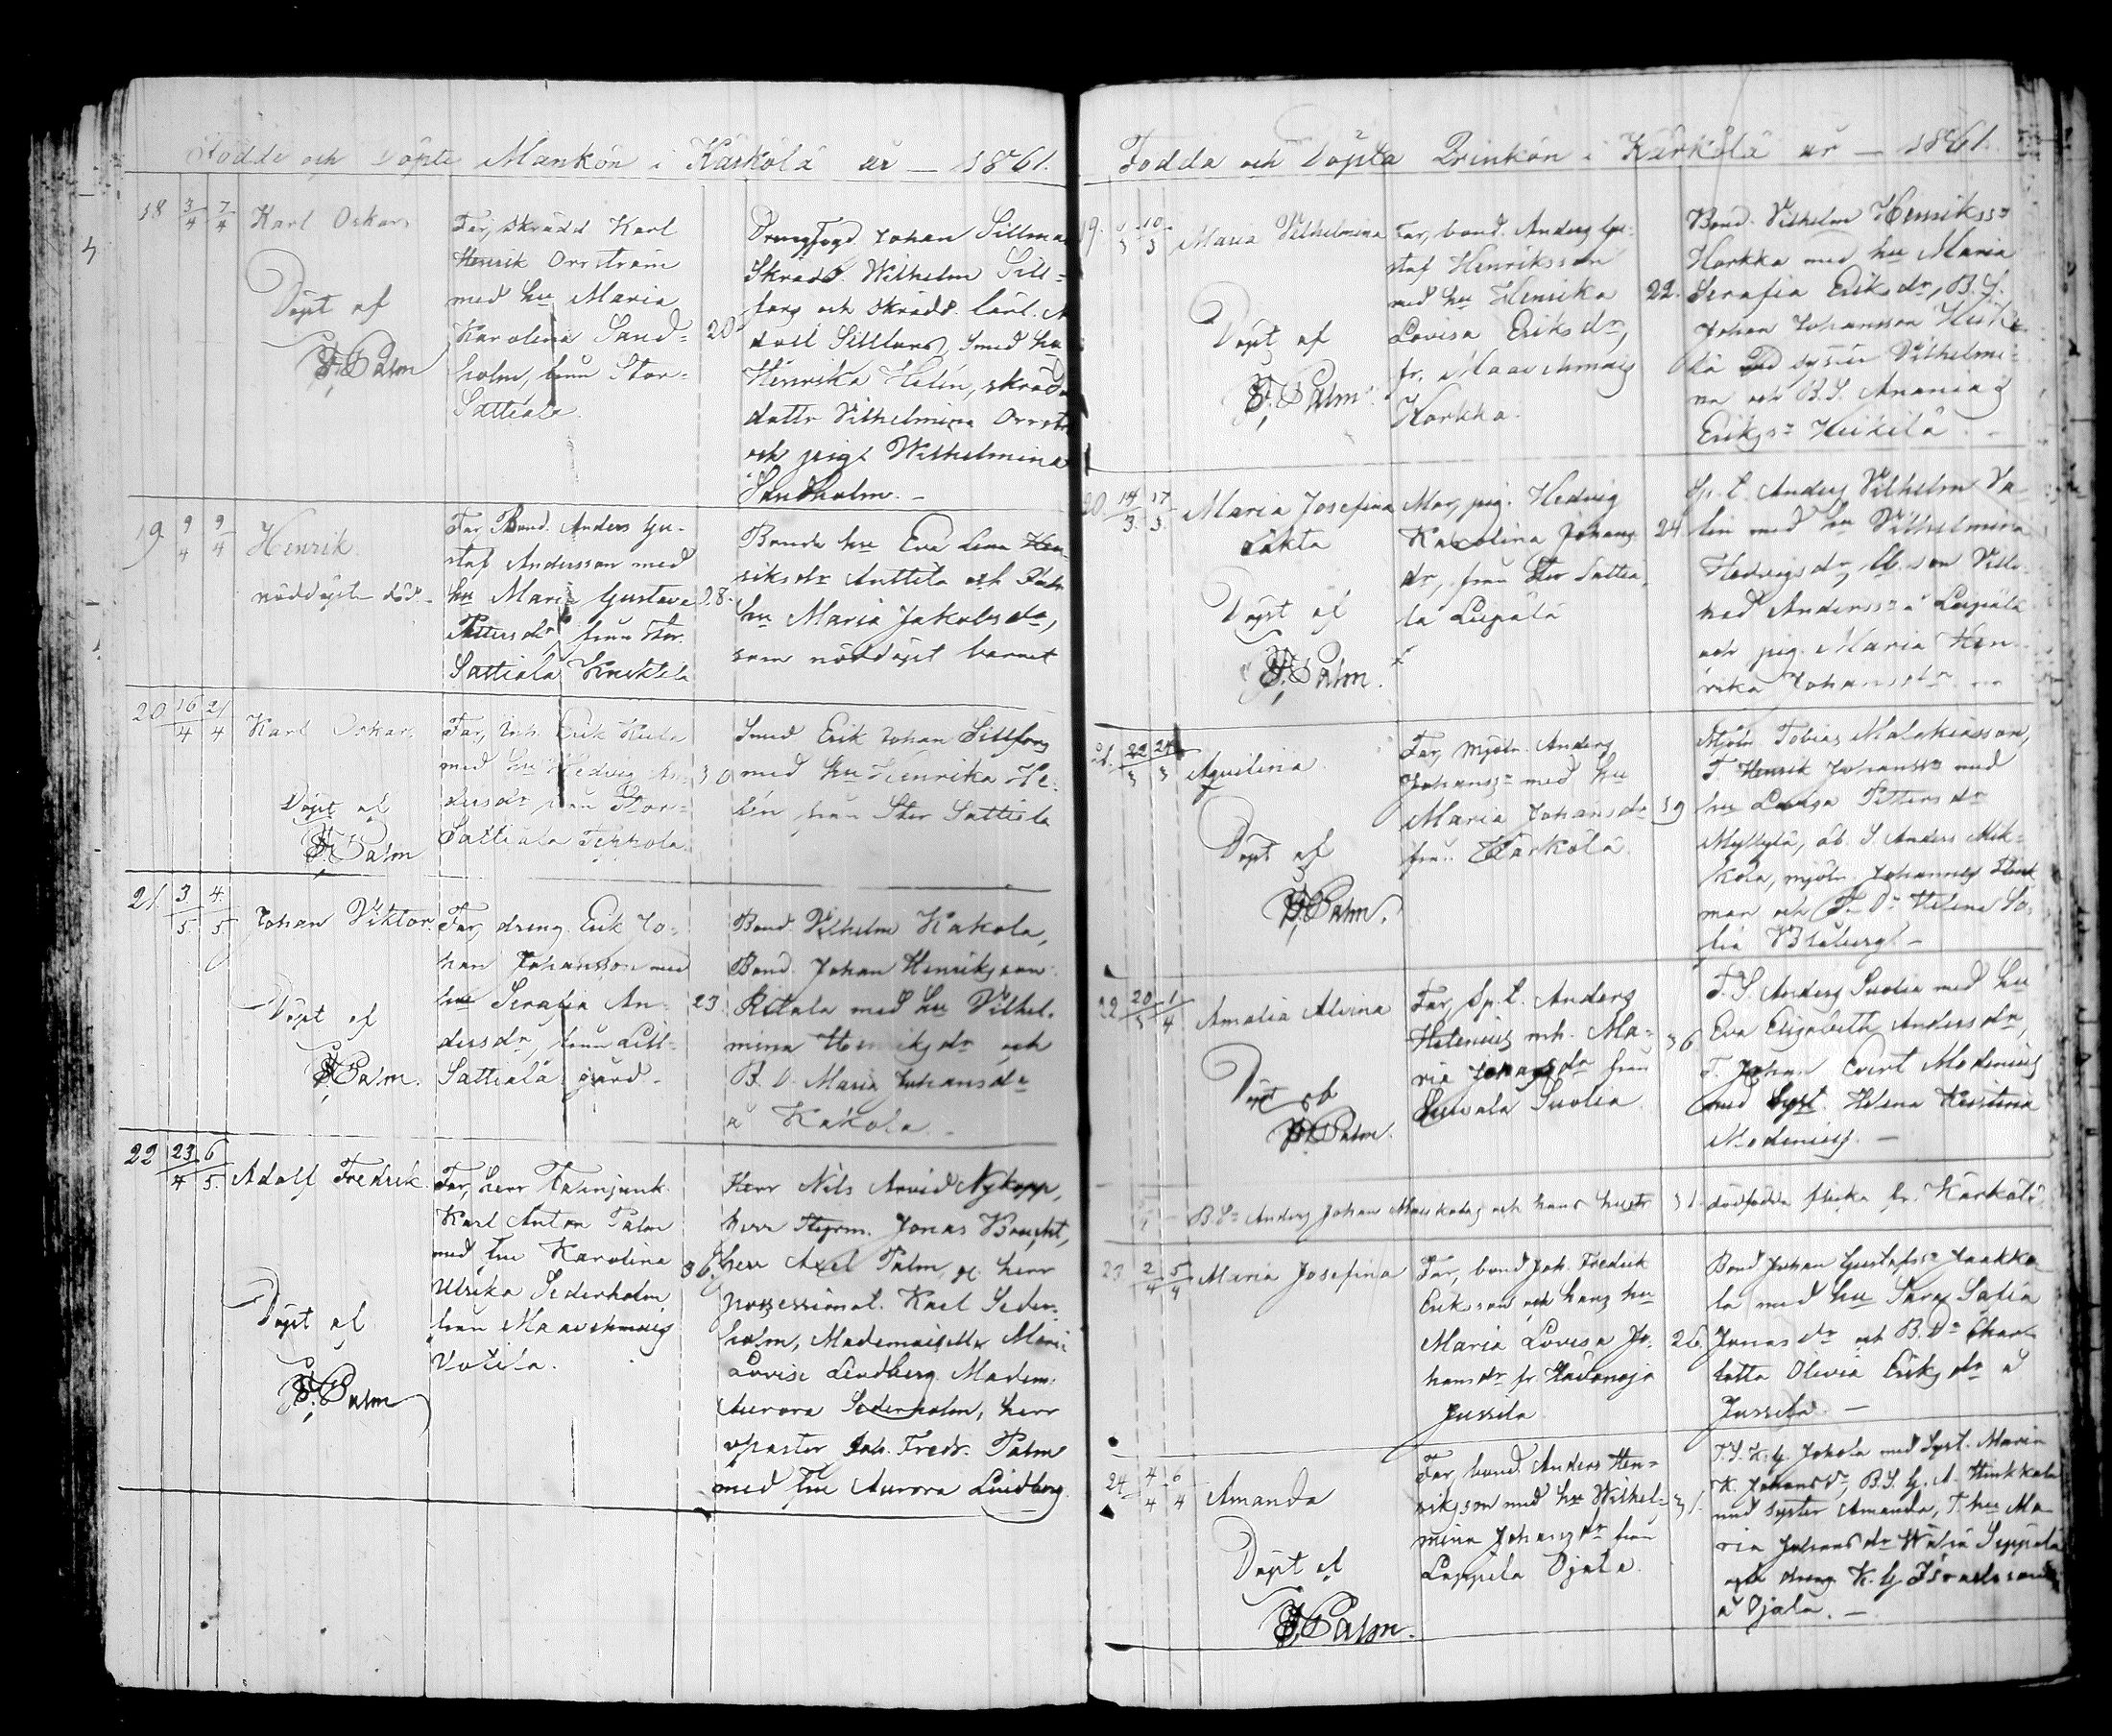 Födde och Döpte Mankön i Kärkölä år — 1861.
18 3/4 7/4 Karl Oskar
Döpt af
J. F. Palm
Far, skrädd Karl
Henrik Orrström
med hu Maria
Karolina Sand=
holm, från Stor=
Sattiala.
20
Johan Sillman
Skrädd. Wilhelm Sill=
fors och skrädd. Carl A
dolf Sillfors, smed hu
Henrika Helén, skrädd
dottr Vilhelmina Orrstr
och pig. Wilhelmina
Sandholm. —
19 9/4 9/4 Henrik
nöddöpt död.
Far, Bond. Anders Gu-
staf Andersson med
hu Maria Gustava
Pettersdr, från Stor
Sattiala Knihtila
28.
Bonde hu Eva Lena Hen-
riksdr Anttila och
hu Maria Jakobsdr,
som nöddöpt barnet
20 16/4 21/4 Karl Oskar.
Döpt af
J. F. Palm
Far, inh. Erik
med hu Hedvig An
dersdr, från Stor=
Sattiala Teppola.
30
Smed Erik Johan Sillfors
med hu Henrika He=
lén från Stor Sattiala
21 3/5 4/5 Johan Viktor.
Döpt af
J. F. Palm.
Far, dreng. Erik Jo=
han Johansson med
hu Serafia An=
dersdr, från Lill=
Sattialä gård.
23.
Bond. Vilhelm Kakola,
Bond. Johan Henriksson
med hu Vilhel.
mina Henriksdr och
B. D. Maria Johansdr
å Kakola. —
22 23/4 6/5 Adolf Fredrik.
Döpt af
J. F. Palm
Far, herr Fanjunk.
Karl Anton Palm
med fru Karolina
Ulrika Sederholm
från Maavehmais
Votila.
36.
Herr Nils Arvid Nykopp,
herr Styrm. Jonas
herr Axel Palm, herr
possessionat. Karl Seder=
holm, Mademoiselle Marie
Lovise Lindberg, Madem.
Aurora Sederholm, herr
v. paster Joh. Fredr. Palm
med fru Aurora Lindberg.
Födda och Döpta Qvinkön i Kärkölä år — 1861.
19. 10/3 Maria Vilhelmina
Döpt af
J. F. Palm.
Far, bond. Anders Gu=
staf Henriksson
med hu Henrika
Lovisa Eriksdr,
fr. Maavehmais
Korkka.
22.
Bond. Vilhelm Henrikssn
Korkka med hu Maria
Serafia Eriksdr, B. S.
Johan Johansson Heiki
lä med syster Vilhelmi=
na och B. S. Ananias
Erikssn Heikilä. —
20 14/3 17/3 Maria Josefina
oäkta
Döpt af
J. F. Palm.
Mor, pig. Hedvig
Karolina Johans
dr, från Stor Sattia=
la Lepälä
24.
Sp. l. Anders Vilhelm Va
lin med hu Vilhelmina
Hedvigsdr,
Anderssn å Lepälä
och pig. Maria Hen=
rika Johansdr. —
21. 22/3 24/3 Aqvilina.
Döpt af
J. F. Palm.
Far, Mjöln. Anders
Johanssn med hu
Maria Johansdr
från Kärkölä.
39
Mjöln Tobias Malakiasson,
T. Henrik Johanssn med
hu Lovisa Pettersdr
Myllylä, åb. S Anders Mik=
kola, mjöln. Johannes
man och T. Dr Helena So=
fia Blåberg. —
22 20/3 1/4 Amalia Alvina
Döpt af
J. F. Palm.
Far, Sp. l. Anders
Helenius och Ma=
ria Johansdr från
Suolia.
36
T. S. Anders Suolia med hu
Eva Elizabeth Andersdr,
T. Johan Evert Modenius
med Syst. Helena Kristina
Modenius. —
B. Sn Anders Johan och hans hustr 31. dödfödda flicka fr. Kärkölä
23 2/4 5/4 Maria Josefina
Far, bond Joh. Fredrik
Eriksson och hans hu
Maria Lovisa Jo=
hansdr fr. Hävonoja
Jussila
26.
Bond Johan Gustafssn Jaakko
la med hu Sara Sofia
Jonasdr och B. Dr Char
lotta Olivia Eriksdr å
Jussila. —
24 4/4 6/4 Amanda
Döpt af
J. F. Palm.
Far, bond. Anders Hen=
riksson med hu Wilhel=
mina Johansdr från
Lappila Ojala.
31.
T. S. K. G. Jokela med Syst. Maria
K. Johansdr, B. S. G. A. Heikkola
med syster Amanda, T. hu Ma
ria Johansdr Seppälä
och dreng. K. G. Israelsson
å Ojala. —